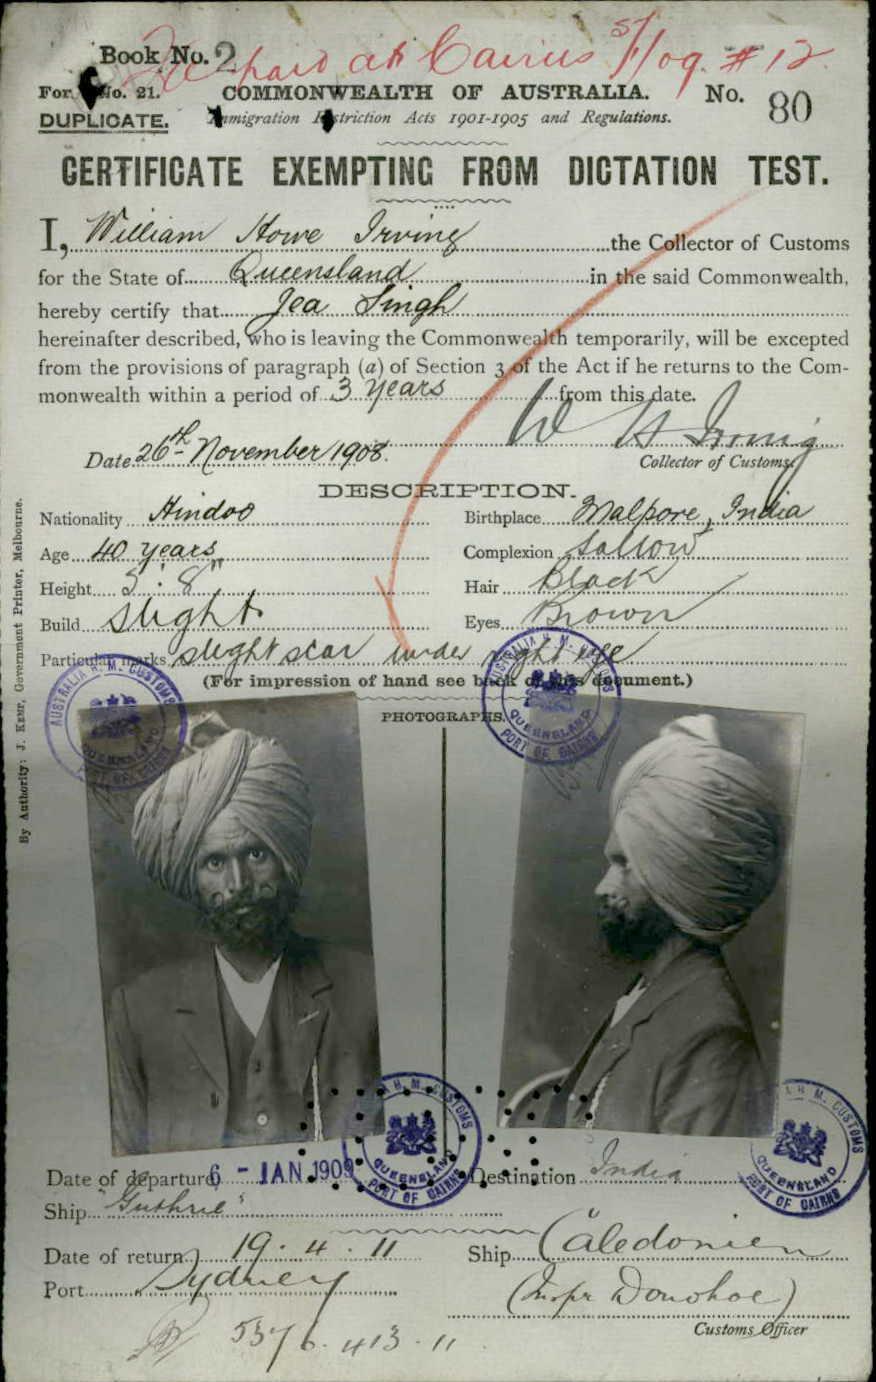 Book No. 2
at Cairns
For No. 21.
COMMONWEALTH OF AUSTRALIA.
No. 80
DUPLICATE.
Immigration Restriction Acts 1901-1905 and Regulations.
CERTIFICATE EXEMPTING FROM DICTATION TEST.
I, William Howe Irving the Collector of Customs
for the State of Queensland in the said Commonwealth,
hereby certify that Jea Singh
hereinafter described, who is leaving the Commonwealth temporarily, will be excepted
from the provisions of paragraph (a) of Section 3 of the Act if he returns to the Com-
monwealth within a period of 3 years from this date.
W H Irving
Date 26th November 1908.
Collector of Customs.
DESCRIPTION.
Nationality Hindoo
Birthplace Malpore, India
Age 40 years
Complexion Sallow
Height 5' 8"
Hair Black
Build slight
Eyes Brown
Particular marks slight scar under right eye
(For impression of hand see back of this document.)
PHOTOGRAPHS.
AUSTRALIA H. M. CUSTOMS QUEENSLAND PORT OF CAIRNS
AUSTRALIA H. M. CUSTOMS QUEENSLAND PORT OF CAIRNS
By Authority: J. KEMP, Government Printer, Melbourne.
H. M. CUSTOMS QUEENSLAND PORT OF CAIRNS
H. M. CUSTOMS QUEENSLAND PORT OF CAIRNS
Date of departure 6 - JAN. 1909
Destination India
Ship "Guthrie"
Date of return 19. 4. 11
Ship "Caledonien
Port Sydney
(Inspr Donohoe)
Customs Officer
413. 11